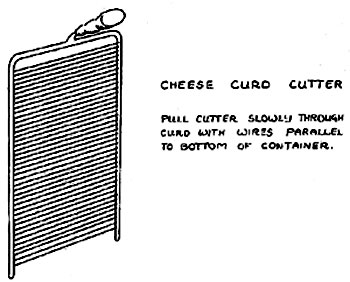 CHEESE CURD CUTTER
PULL CUTTER SLOWLY THROUGH
CURD WITH WIRES PARALLEL
TO BOTTOM OF CONTAINER.